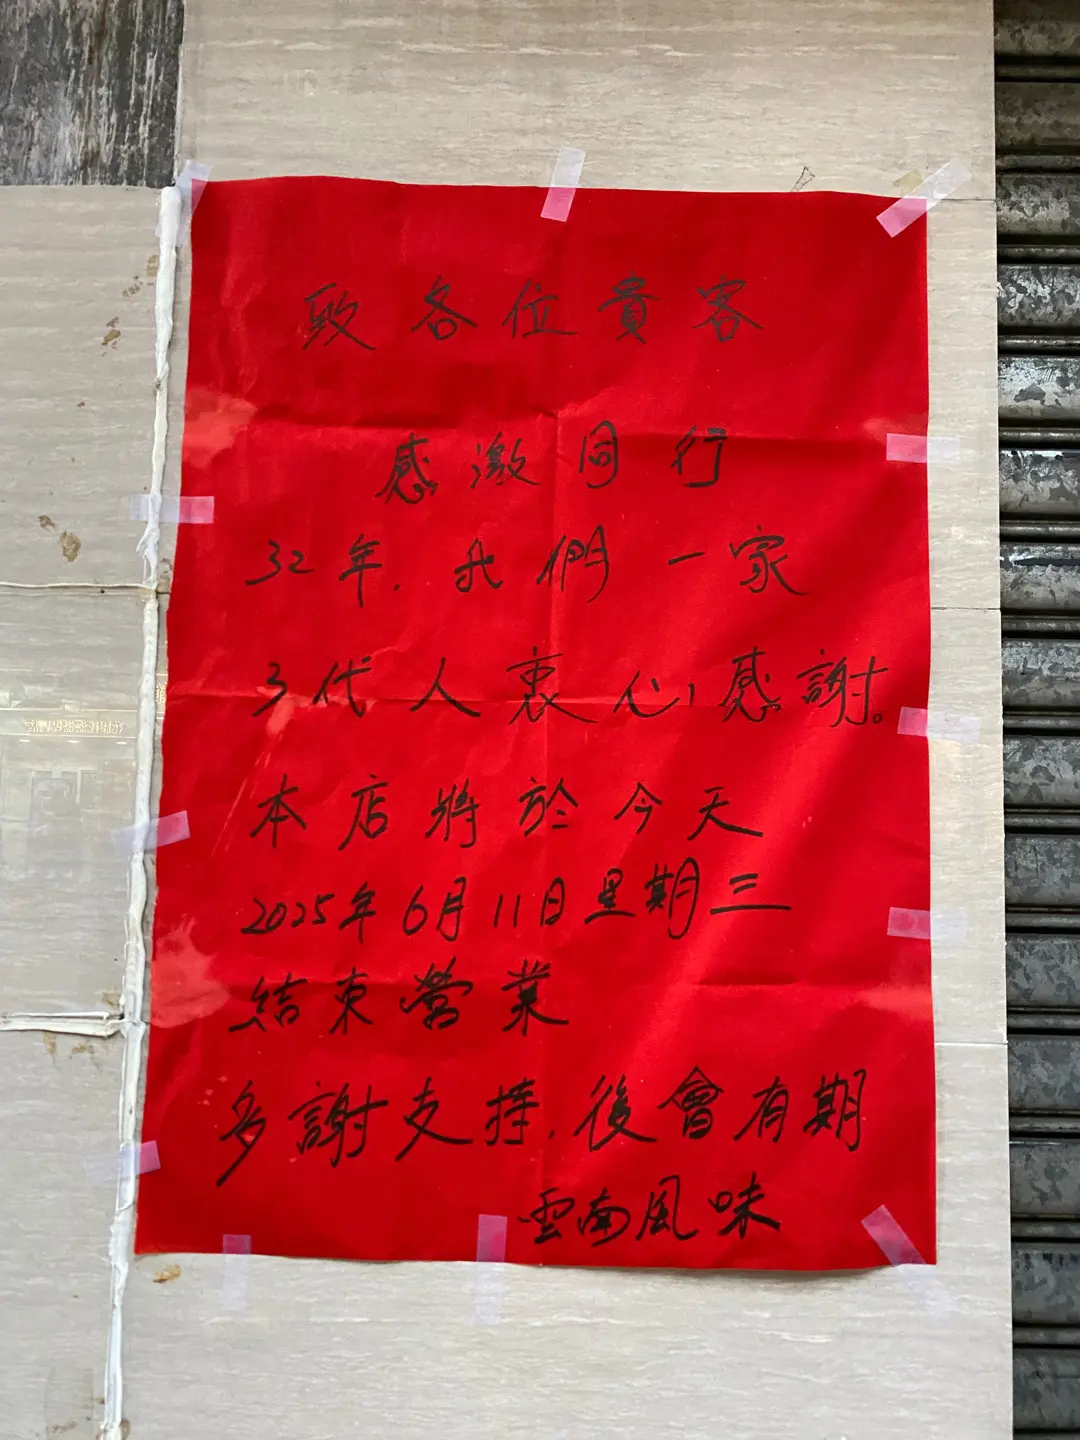 致各位貴客
感激同行
32年.我們一家
3代人衷心感謝。
本店將於今天
2025年6月11日星期三
結束營業
多謝支持.後會有期
雲南風味